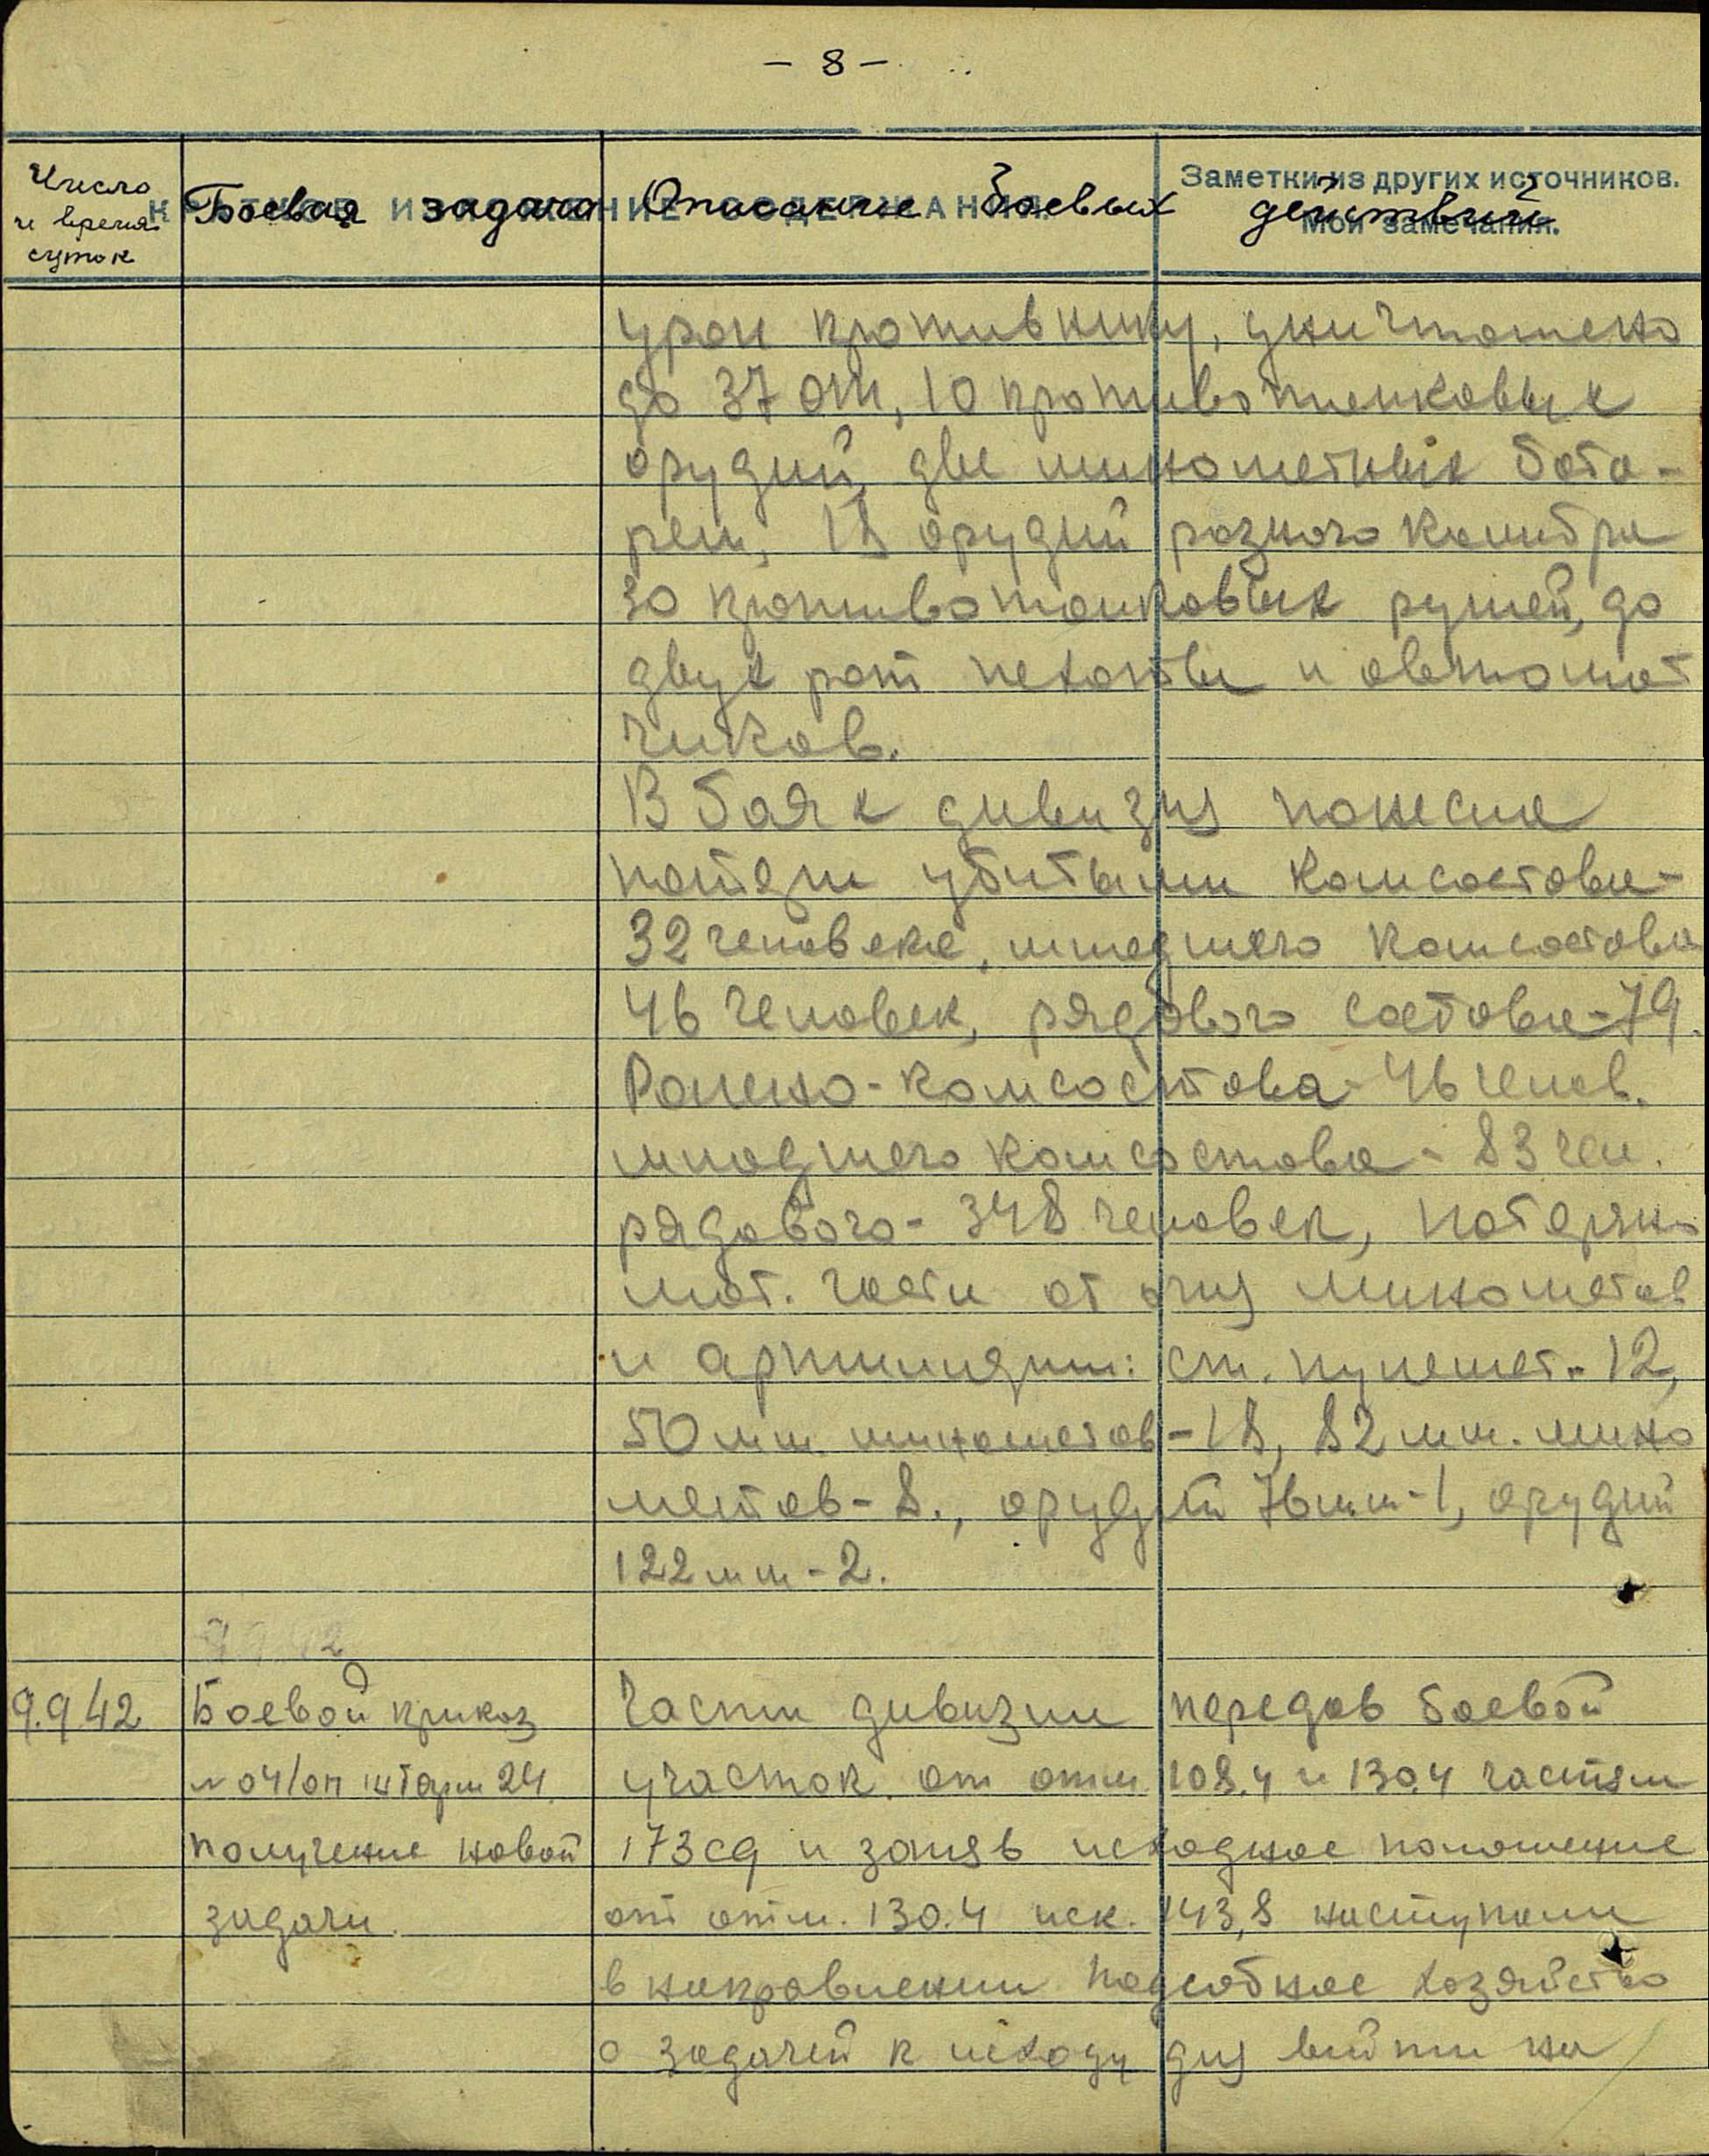 - 8 -
Число
и время
суток
Боевая задача
Описание боевых действий
Заметки из других источников.
Мои замечания.
урон противнику, уничтожено
до 37 от, 10 противотанковых
орудий, две минометных бата-
реи, 18 орудий разного калибра
30 противотанковых ружей, до
двух рот пехоты и автомат
чиков.
В боях дивизия понесла
потери убитыми комсостава-
32 человека, младшего комсостава
46 человек, рядового состава-79.
Ранено-комсостава-46 челов.
младшего комсостава-83 чел.
рядового-348 человек, потеряно
мат. части от огня минометов
и артиллерии: ст. пулемет.-12,
50 мм. минометов-18, 82 мм. мино
метов-8., орудий 76мм-1, орудий
122мм-2.
9.9.42
Боевой приказ
№ 04/оп штарм 24.
получение новой
задачи.
Части дивизии передав боевой
участок. от отм. 108.4 и 130.4 частям
173сд и заняв исходное положение
от отм. 130.4 иск. 143,8 наступали
в направлении подсобное хозяйство
с задачей к исходу дня выйти на